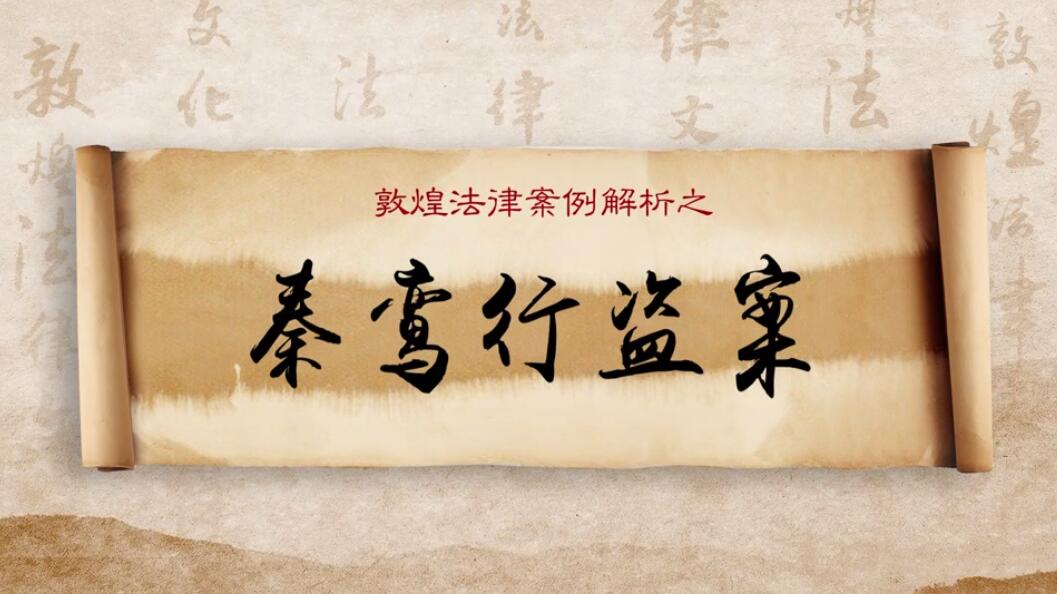 敦煌法律案例解析之
秦鸾行盗案
敦煌法律
文化
法
法律
律文
煌法
敦煌法律